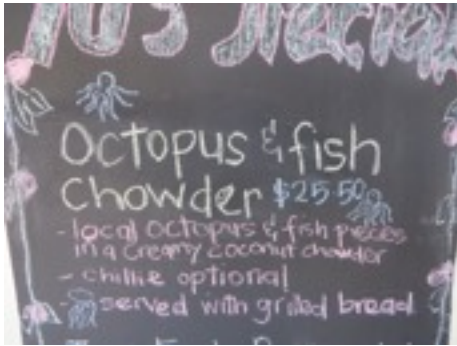 Specials
Octopus & fish
chowder $25.50
- local octopus & fish pieces
in a creamy coconut chowder
- chillie optional
- served with grilled bread